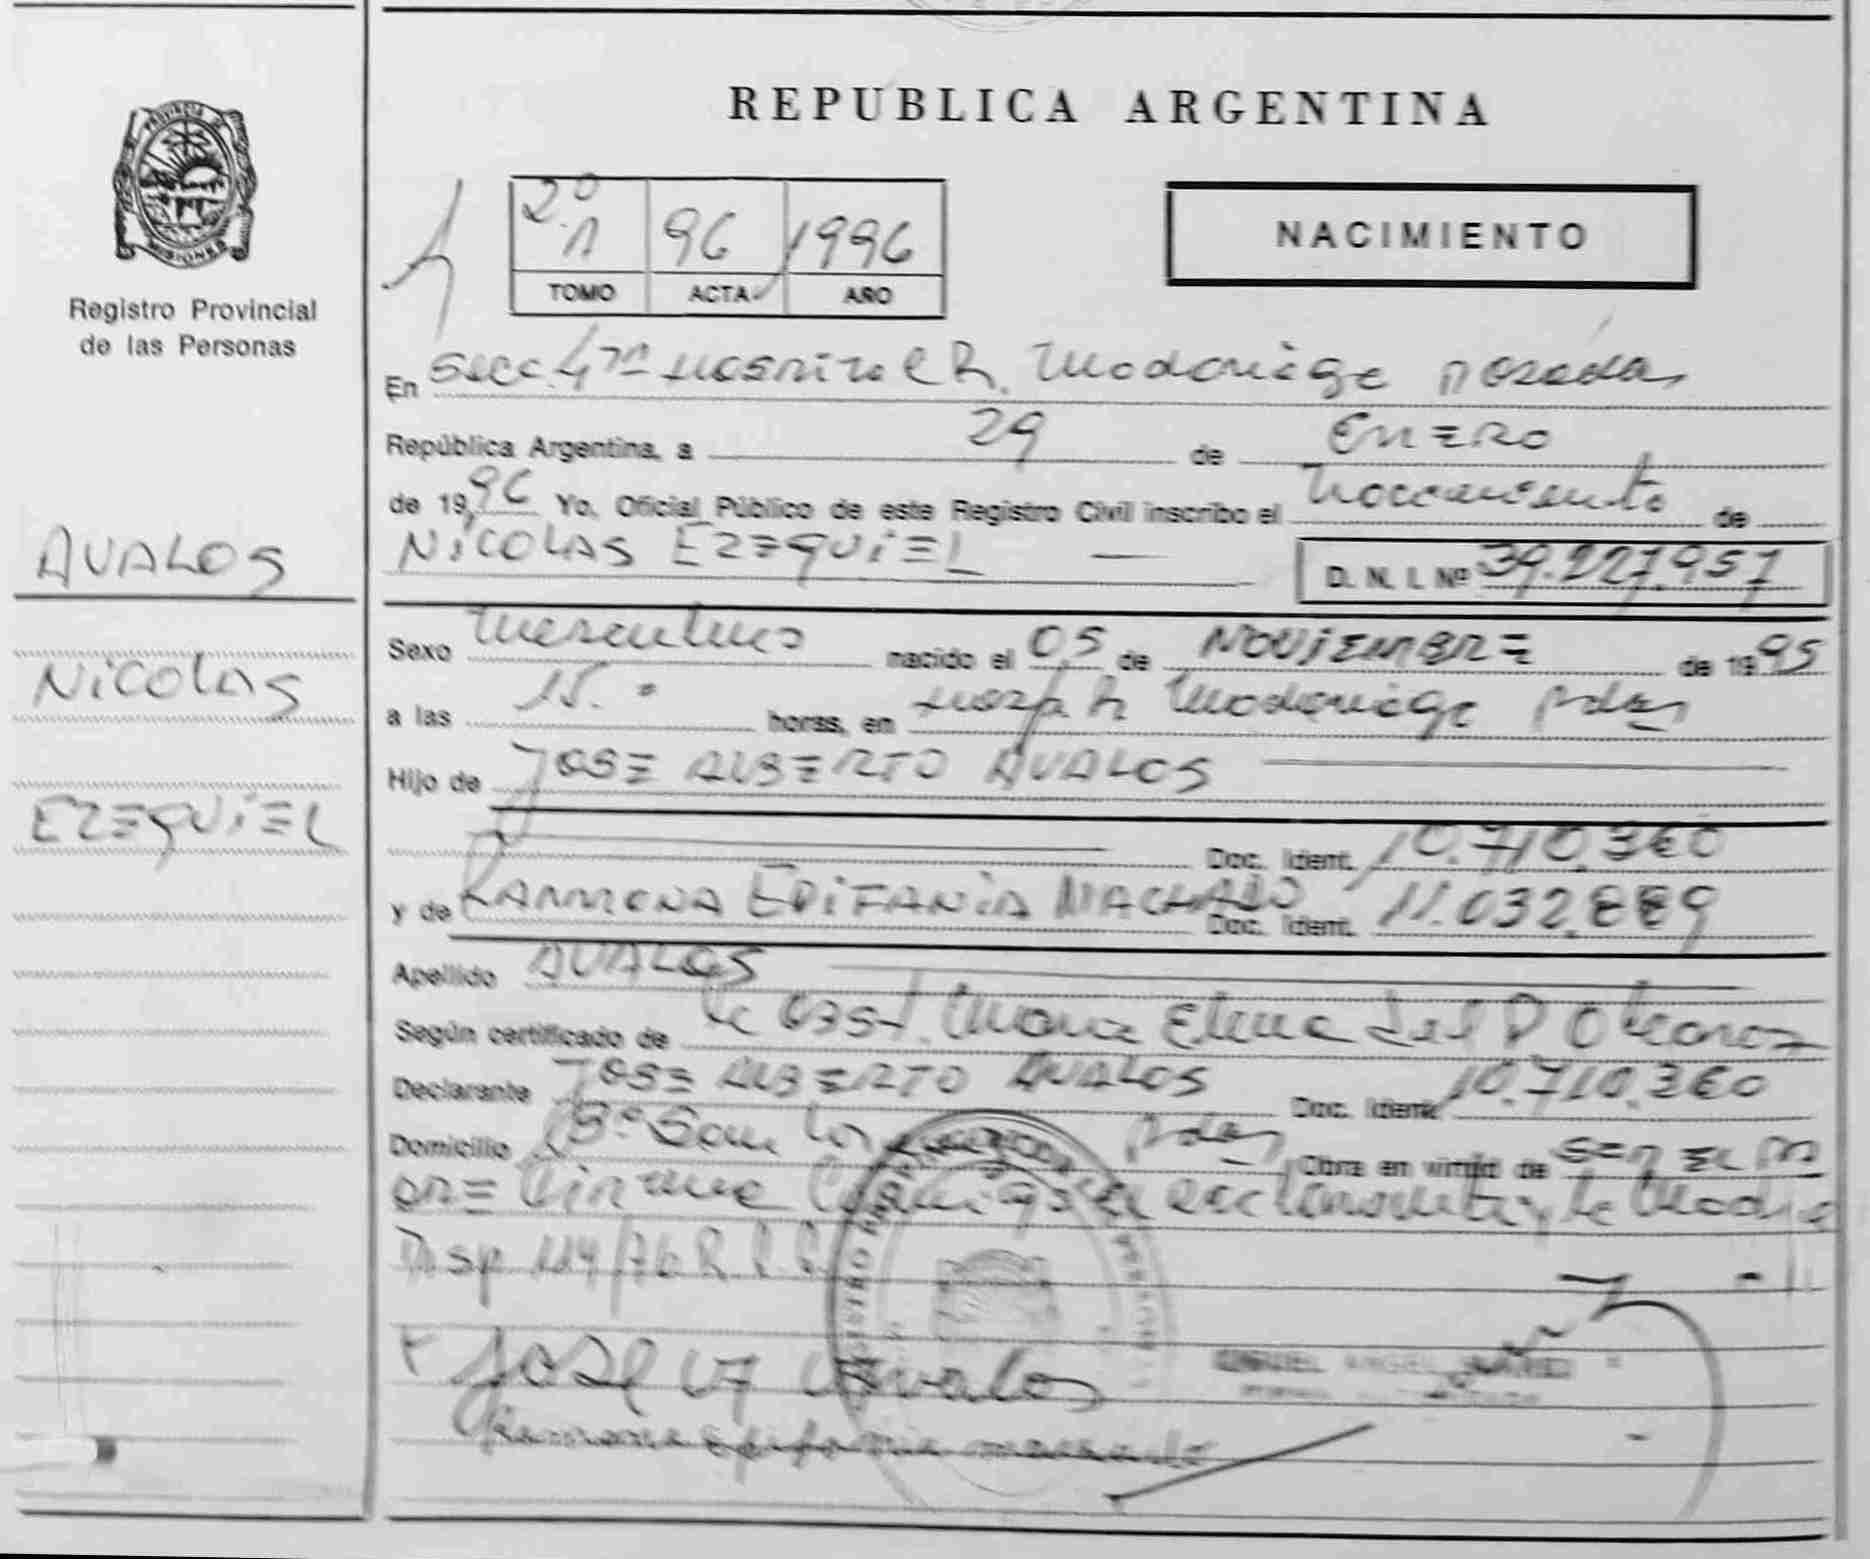 REPUBLICA ARGENTINA
PROVINCIA DE MISIONES
Registro Provincial
de las Personas
NACIMIENTO
2º 1 96 1996
TOMO ACTA AÑO
En Secc. 4ta Hospital R. Madariaga Posadas
República Argentina, a 29 de Enero
de 1996 Yo, Oficial Público de este Registro Civil inscribo el Nacimiento de
NICOLAS EZEQUIEL — D. N. I. Nº 39.227.957
AVALOS
NICOLAS
EZEQUIEL
Sexo Masculino nacido el 05 de NOVIEMBRE de 1995
a las 15. horas, en Hosp. R. Madariaga Pdas
Hijo de JOSE ALBERTO AVALOS
Doc. Ident. 10.710.360
y de RAMONA EPIFANIA MACHADO Doc. Ident. 11.032.889
Apellido AVALOS
Según certificado de la Obst. Maria Elena del P
Declarante JOSE ALBERTO AVALOS Doc. Ident. 10.710.360
Domicilio Bº San Pdas Obra en virtud de SER EL PA
DRE Firma el declarante y la Madre
Disp 114/76 R.
Jose A Avalos
Ramona Epifania Machado
MIGUEL ANGEL